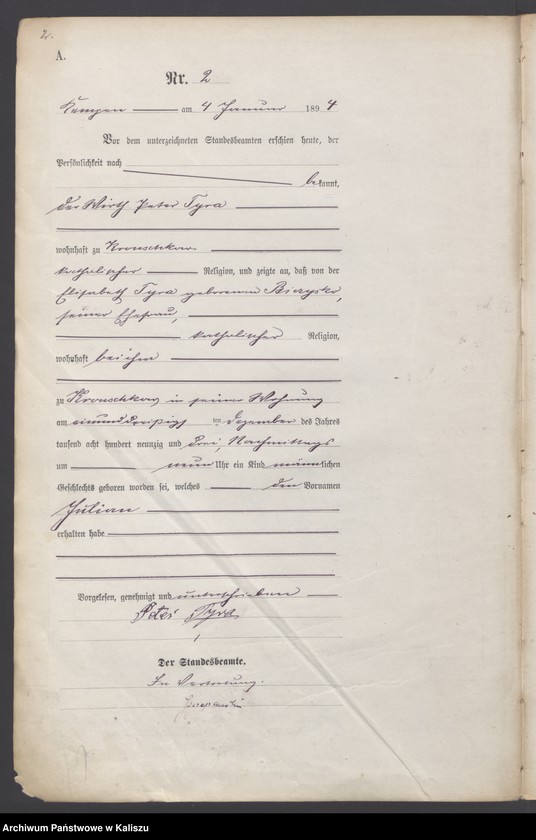 2.
A.
Nr. 2
Kempen am 4 Januar 1894
Vor dem unterzeichneten Standesbeamten erschien heute, der
Persönlichkeit nach
bekannt,
der Wirth Peter Tyra
wohnhaft zu
katholischer Religion, und zeigte an, daß von der
Elisabeth Tyra geborenen
seiner Ehefrau,
katholischer Religion,
wohnhaft bei ihm
zu in seiner Wohnung
am einunddreißigsten ten Dezember des Jahres
tausend acht hundert neunzig und drei, Nachmittags
um neun Uhr ein Kind männlichen
Geschlechts geboren worden sei, welches den Vornamen
Julian
erhalten habe
Vorgelesen, genehmigt und unterschrieben
Peter Tyra
Der Standesbeamte.
In Vertretung.
Archiwum Państwowe w Kaliszu